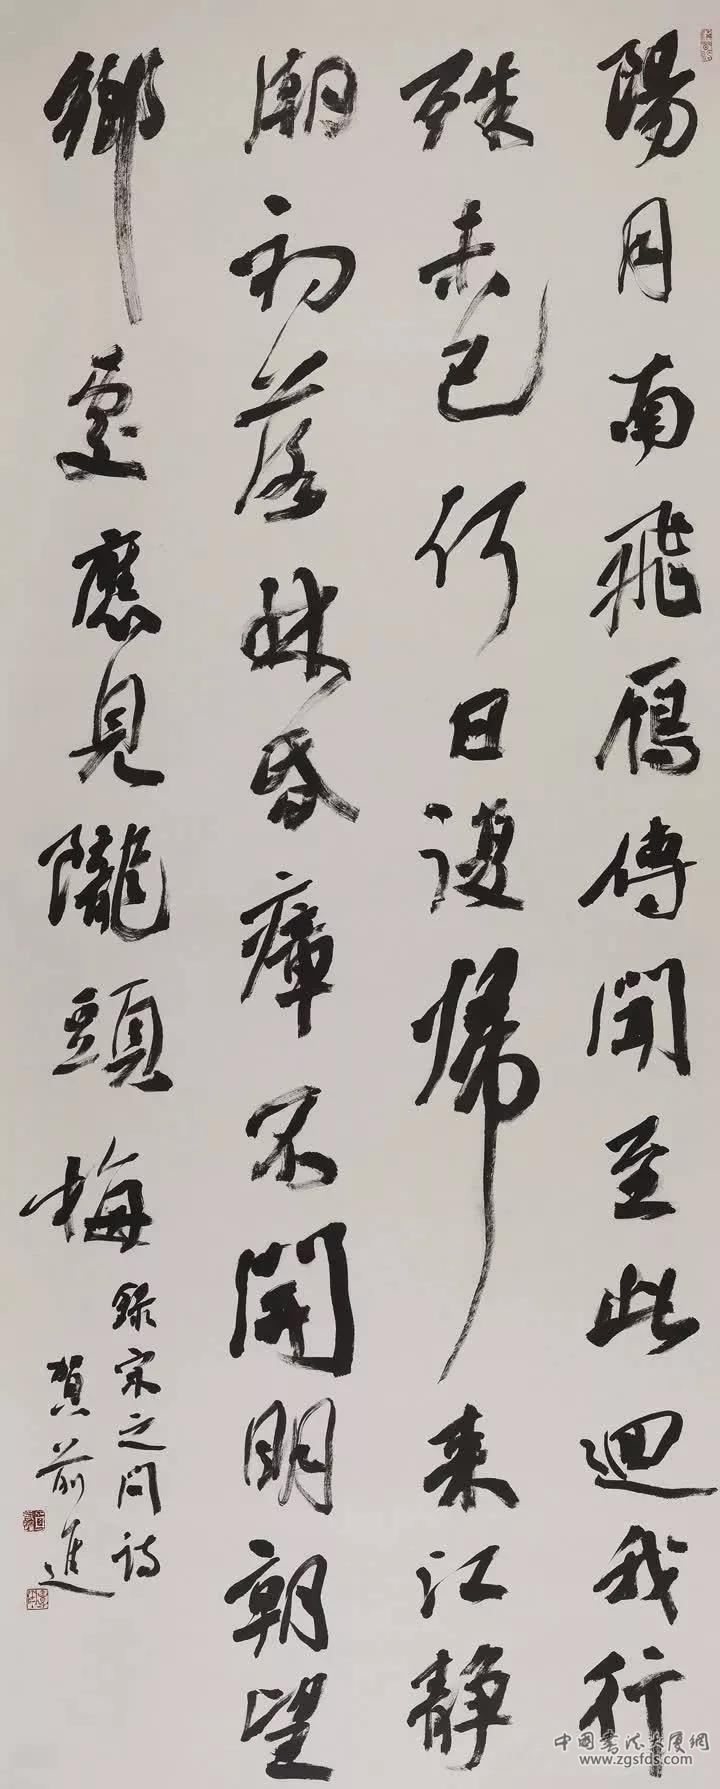 陽月南飛雁傳聞至此迴我行
殊未已何日復歸来江静
潮初落林昏瘴不開明朝望
鄉處應見隴頭梅
録宋之问诗
賀前進
中国书法大厦網
www.zgsfds.com